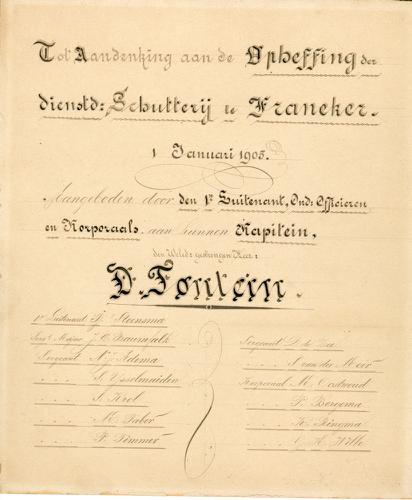 Tot Aandenking aan de Opheffing der
dienstd: Schutterij te Franeker.
1 Januari 1905.
Aangeboden door den 1e Luitenant, Ond: Officieren
en Korporaals aan hunnen Kapitein,
den Weled: gestrengen Heer:
D. Fontein.
1e Luitenant Steensma
Sergt Majoor J. C.
Sergeant N. J. Adema
. . . S. IJsselmuiden
. . . S. Krol
. . . M. Faber
. . . F. Timmer
Sergeant
. . . S. van der Meer
Korporaal M. Oostwoud
. . . P. Bergsma
. . . K. Ringma
. . . Wille